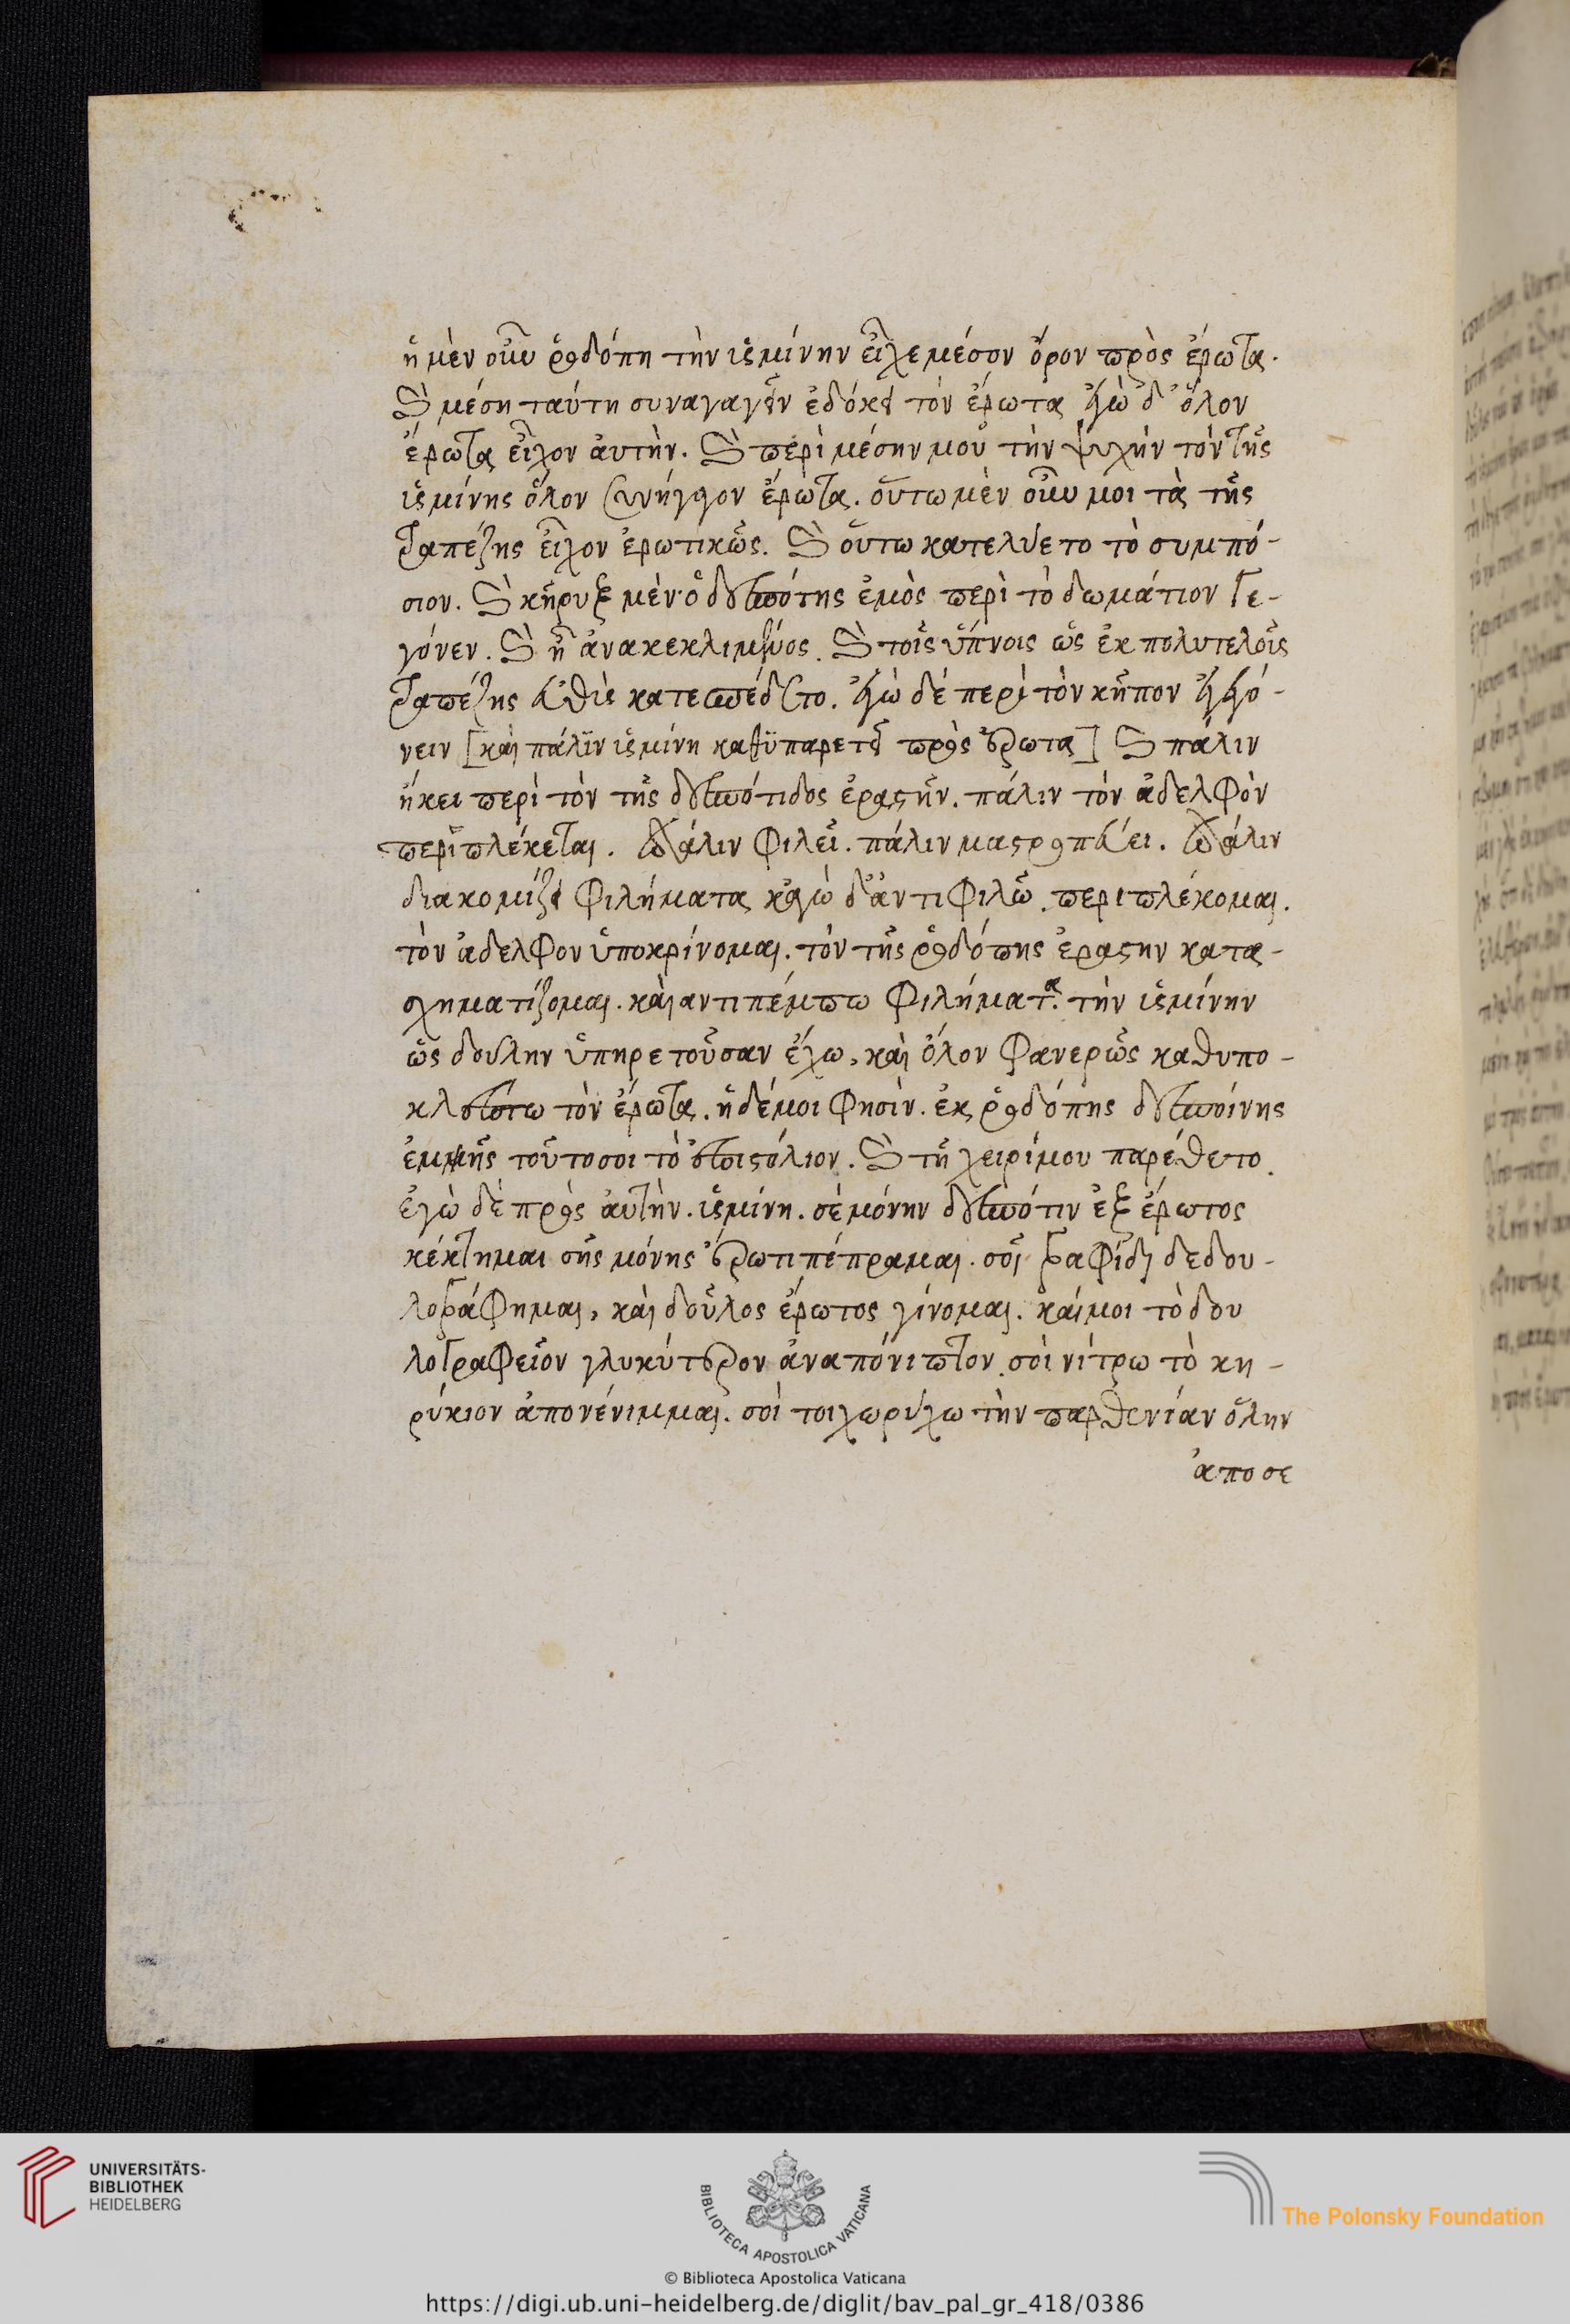 ἡ μὲν οὖν ῥοδόπη τὴν ἰσμίνην εἶχε μέσον ὅρον πρὸς ἔρωτα.
καὶ μέση ταύτη συναγαγεῖν ἐδόκει τὸν ἔρωτα ἐγὼ δ' ὅλον
ἔρωτα εἶχον ἀυτὴν. καὶ περὶ μέσην μου τὴν ψυχὴν τὸν τῆς
ἰσμίνης ὅλον συνῆγον ἔρωτα. οὕτω μὲν οὖν μοι τὰ τῆς
τραπέζης εἶχον ἐρωτικῶς. καὶ οὕτω κατελύετο τὸ συμπό-
σιον. καὶ κῆρυξ μὲν ὁ δεσπότης ἐμὸς περὶ τὸ δωμάτιον γε-
γόνεν. καὶ ἦν ἀνακεκλιμένος. καὶ τοῖς ὕπνοις ὡς ἐκ πολυτελοῖς
τραπέζης εὐθὺς κατεσπένδετο. ἐγὼ δέ περὶ τὸν κῆπον ἐγεγό-
νειν [καὶ πάλϊν ἰσμίνη καθϋπαρετεῖ πρὸς ἔρωτα] καὶ πάλιν
ἥκει περὶ τὸν τῆς δεσπότιδος ἐραστὴν. πάλιν τὸν ἀδελφὸν
περϊπλέκεται. πάλιν φιλεῖ. πάλιν μαστροπεύει. πάλιν
διακομίζει φιλήματα κἀγὼ δ' ἀντιφιλῶ. περιπλέκομαι.
τὸν ἀδελφον ὑποκρίνομαι. τὸν τῆς ῥοδόπης ἐραστην κατα-
σχηματίζομαι. καὶ αντιπέμπω φιλήματα. τὴν ἰσμίνην
ὡς δούλην ὑπηρετοῦσαν ἔχω, καὶ ὅλον φανερῶς καθυπο-
κλέπτω τὸν ἔρωτα. ἡ δέ μοι φησὶν. ἐκ ῥοδόπης δεσποίνης
ἐμῆς τοῦτο σοι τὸ ἐπιστόλιον. καὶ τῇ χειρί μου παρέθετο.
ἐγὼ δὲ πρὸς ἀυτὴν. ἰσμίνη. σὲ μόνην δεσπότιν ἐξ ἔρωτος
κέκτημαι σῆς μόνης ἔρωτι πέπραμαι. σοῖ γραφίδι δεδου-
λογράφημαι, καὶ δοῦλος ἔρωτος γίνομαι. καί μοι τὸ δου
λογραφεῖον γλυκύτερον ἀναπόνιπτον. σοὶ νίτρω τὸ κη-
ρύκιον ἀπονένιμμαι. σοὶ τοιχωρύχω τὴν παρθενίαν ὅλην
ἀποσε
UNIVERSITÄTS-
BIBLIOTHEK
HEIDELBERG
BIBLIOTECA APOSTOLICA VATICANA
The Polonsky Foundation
© Biblioteca Apostolica Vaticana
https://digi.ub.uni-heidelberg.de/diglit/bav_pal_gr_418/0386